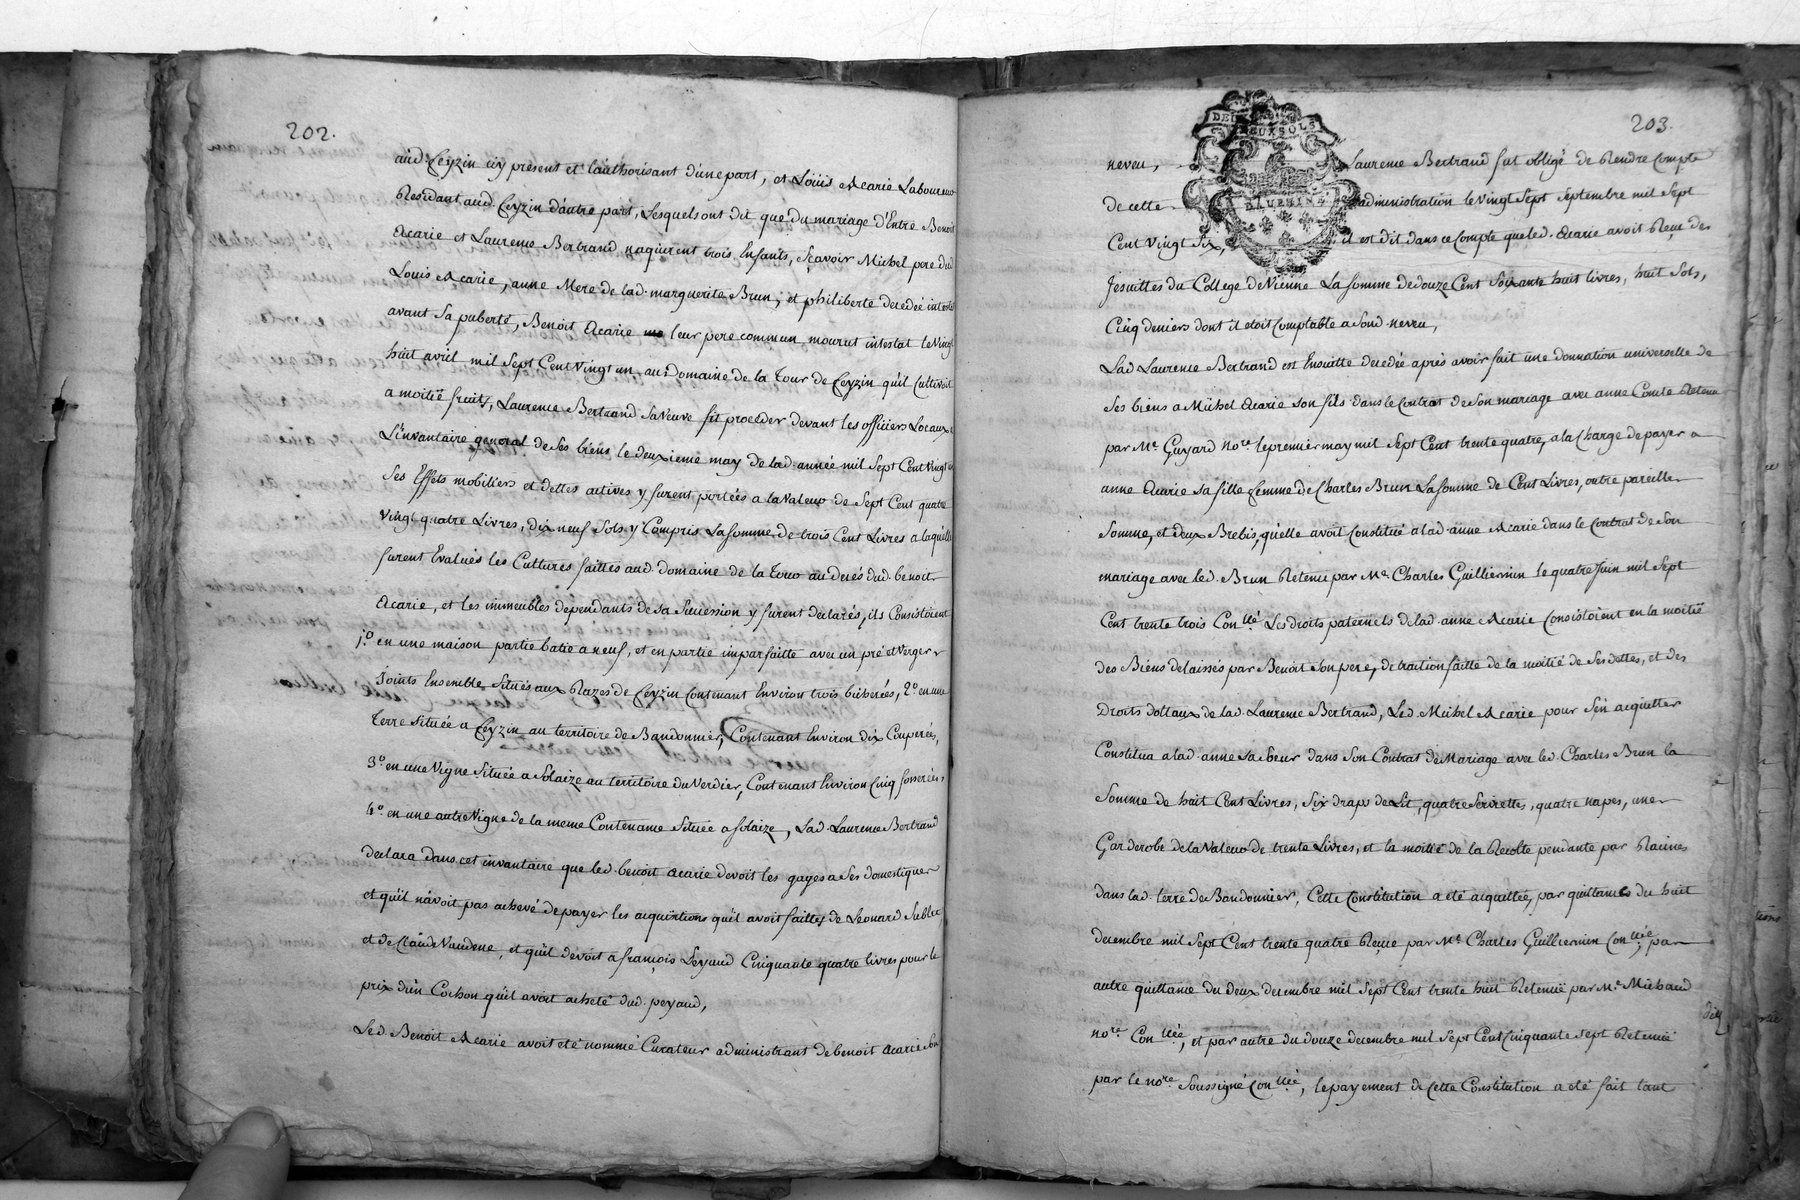 202.
aud. Ceyzin icy présens et l'authorisant d'une part, et Loüis Acarie Laboureur
Residant aud. Ceyzin d'autre part, Lesquels ont dit que du mariage d'Entre Benoit
Acarie et Laurence Bertrand naquirent trois Enfants, Sçavoir Michel pere dud
Louis Acarie, anne Mere de lad. marguerite Brun, et philiberte decedée intestat
avant sa puberté, Benoit Acarie leur pere commun mourut intestat le Vingt
huit avril mil Sept Cent Vingt un au Domaine de la Tour de Ceyzin qu'il Cultivoit
a moitié fruits, Laurence Bertrand Sa Veuve fit proceder devant les officiers Locaux a
L'invantaire general de Ses biens le deuxieme may de lad. année mil Sept Cent Vingt un
Ses Effets mobiliers et dettes actives y furent portées a la Valeur de Sept Cent quatre
Vingt quatre Livres, dix neuf Sols y Compris La somme de trois Cent Livres a laquelle
furent Evalués les Cultures faittes aud. domaine de la Tour au decés dud. benoit
Acarie, et les immeubles dependants de sa Succession y furent declarés, ils Consistoient
1.° en une maison partie batie a neuf, et en partie imparfaitte avec un pré et Verger
Joints Ensemble, Situés aux Razes de Ceyzin Contenant Environ trois bicherées, 2.° en une
Terre Située a Ceyzin au territoire de Bandonnier, Contenant Environ dix Couperées,
3.° en une Vigne Située a Solaize au territoire du Verdier, Contenant Environ Cinq fosserées
4.° en une autre Vigne de la meme Contenance Située a Solaize, Lad. Laurence Bertrand
declara dans cet invantaire que led. benoit Acarie devoit les gages a Ses domestiques
et qu'il n'avoit pas achevé de payer les acquisitions qu'il avoit faittes de Leonard Sublet
et de Claude Vaudene, et qu'il devoit a françois Peyaud Cinquante quatre livres pour le
prix d'un Cochon qu'il avoit acheté dud. peyaud,
Led. Benoit Acarie avoit eté nommé Curateur administrant de benoit Acarie Son
203.
DEUX SOLS
DAUPHINÉ
neveu, Laurence Bertrand fut obligé de Rendre Compte
de cette administration le Vingt Sept Septembre mil Sept
Cent Vingt Six, il est dit dans ce Compte que led. Acarie avoit Reçu des
Jesuittes du College de Vienne La somme de douze Cent Soixante huit livres, huit Sols,
Cinq deniers dont il etoit Comptable a Sond. neveu,
Lad. Laurence Bertrand est Ensuitte decedée après avoir fait une donnation universelle de
Ses biens a Michel Acarie son fils dans le Contrat de Son mariage avec anne Comte Retenu
par M.e Guyard no.re le premier may mil Sept Cent trente quatre, a la Charge de payer a
anne Acarie Sa fille femme de Charles Brun La somme de Cent Livres, outre pareille
Somme, et deux Brebis, qu'elle avoit Constitué a lad. anne Acarie dans le Contrat de Son
mariage avec led. Brun Retenu par M.e Charles Guilliermin le quatre Juin mil Sept
Cent trente trois Con.llé Les droits paternels de lad. anne Acarie Consistoient en la moitié
des Biens delaissés par Benoit Son pere, detraction faitte de la moitié de Ses dettes, et des
Droits dottaux de lad. Laurence Bertrand, Led. Michel Acarie pour S'en aquitter
Constitua a lad. anne Sa Soeur dans Son Contrat de Mariage avec led. Charles Brun la
Somme de huit Cent Livres, Six draps de Lit, quatre Serviettes, quatre napes, une
Garderobe de la Valeur de trente Livres, et la moitié de la Recolte pendante par Racines
dans lad. terre de Bandonnier, Cette Constitution a eté aiquittée, par quittances du huit
decembre mil Sept Cent trente quatre Reçue par M.e Charles Guilliermin Con.llée, par
autre quittance du deux decembre mil Sept Cent trente huit Retenuë par M.e Michaud
no.re Con.llée, et par autre du douze decembre mil Sept Cent Cinquante Sept Retenuë
par le no.re Soussigné Con.llée, le payement de Cette Constitution a eté fait tant